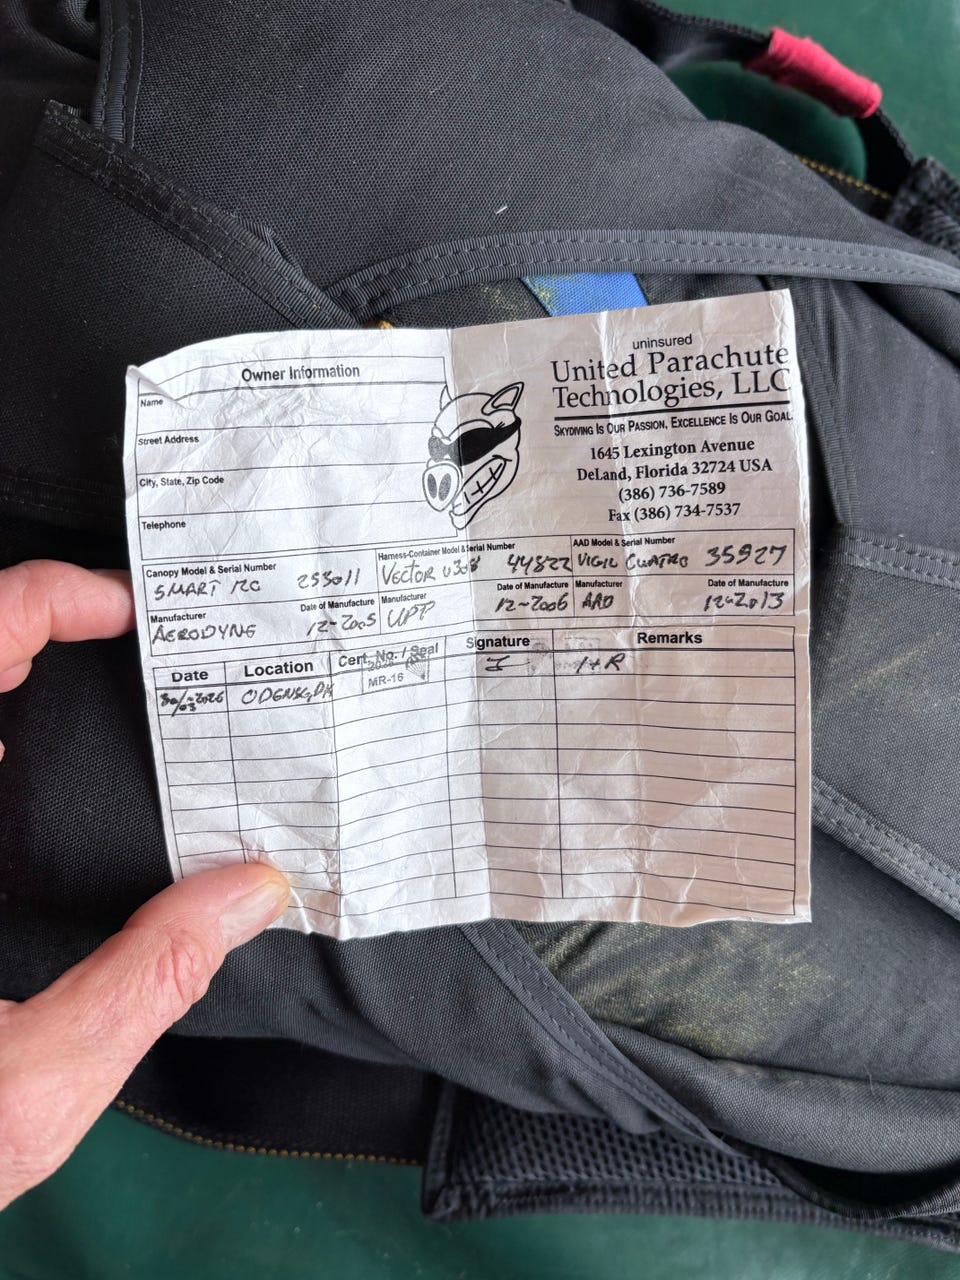 uninsured
United Parachute
Technologies, LLC
SKYDIVING IS OUR PASSION, EXCELLENCE IS OUR GOAL.
1645 Lexington Avenue
DeLand, Florida 32724 USA
(386) 736-7589
Fax (386) 734-7537
Owner Information
Name
Street Address
City, State, Zip Code
Telephone
Canopy Model & Serial Number
SMART 120 253011
Harness-Container Model & Serial Number
VECTOR V308 44822
AAD Model & Serial Number
VIGIL CUATRO 35927
Manufacturer
AERODYNE
Date of Manufacture
12-2005
Manufacturer
UPT
Date of Manufacture
12-2006
Manufacturer
AAD
Date of Manufacture
12-2013
Date Location Cert. No. / Seal Signature Remarks
ODENSE, DK MR-16 I+R